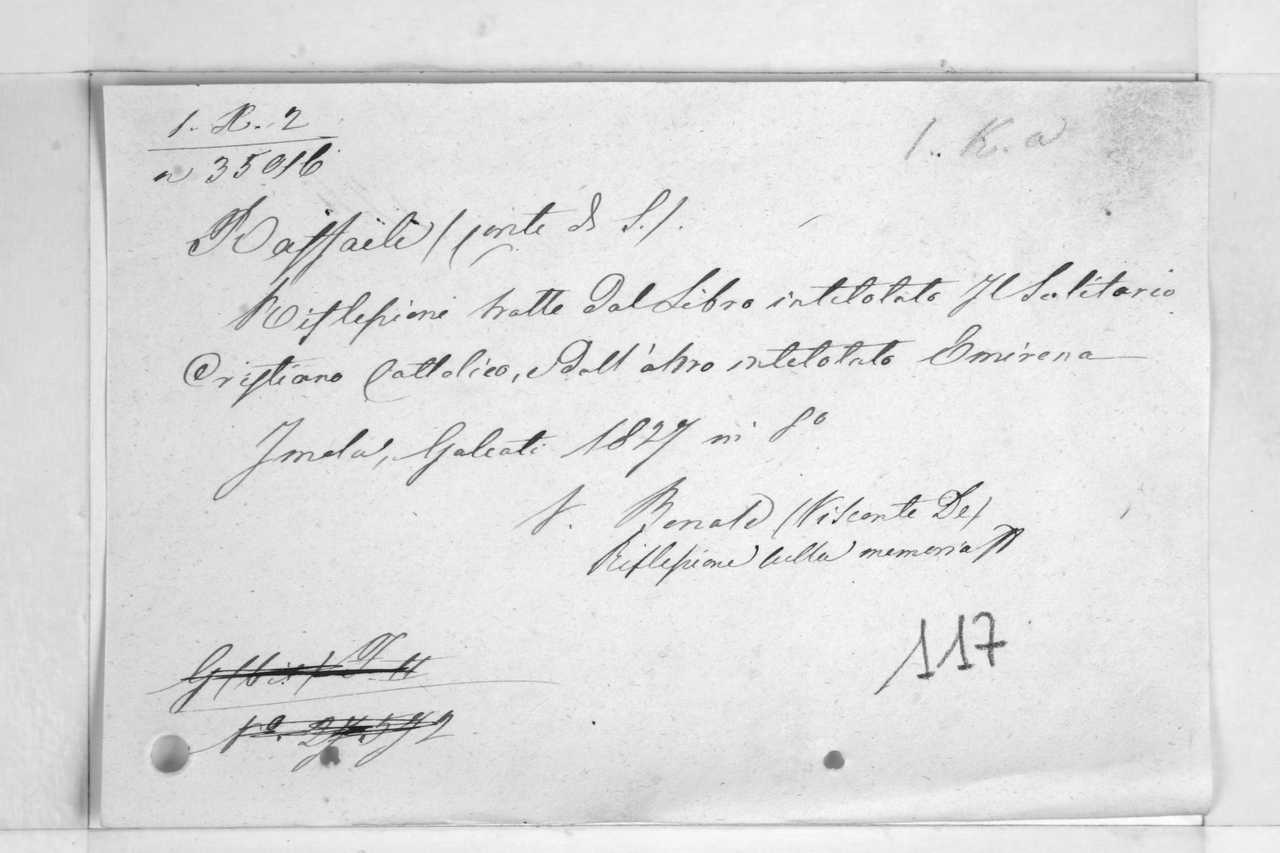 1. K. 2
1. K. a
n 35916
Raffaeli (Conte di S.).
Riflessioni tratte dal Libro intitolato Il Solitario
Cristiano Cattolico, e dall'altro intitolato Emirena
Imola, Galeati 1827 in 8º
V. Bonald (Visconte De)
Riflessione sulla memoria
117
Nº.